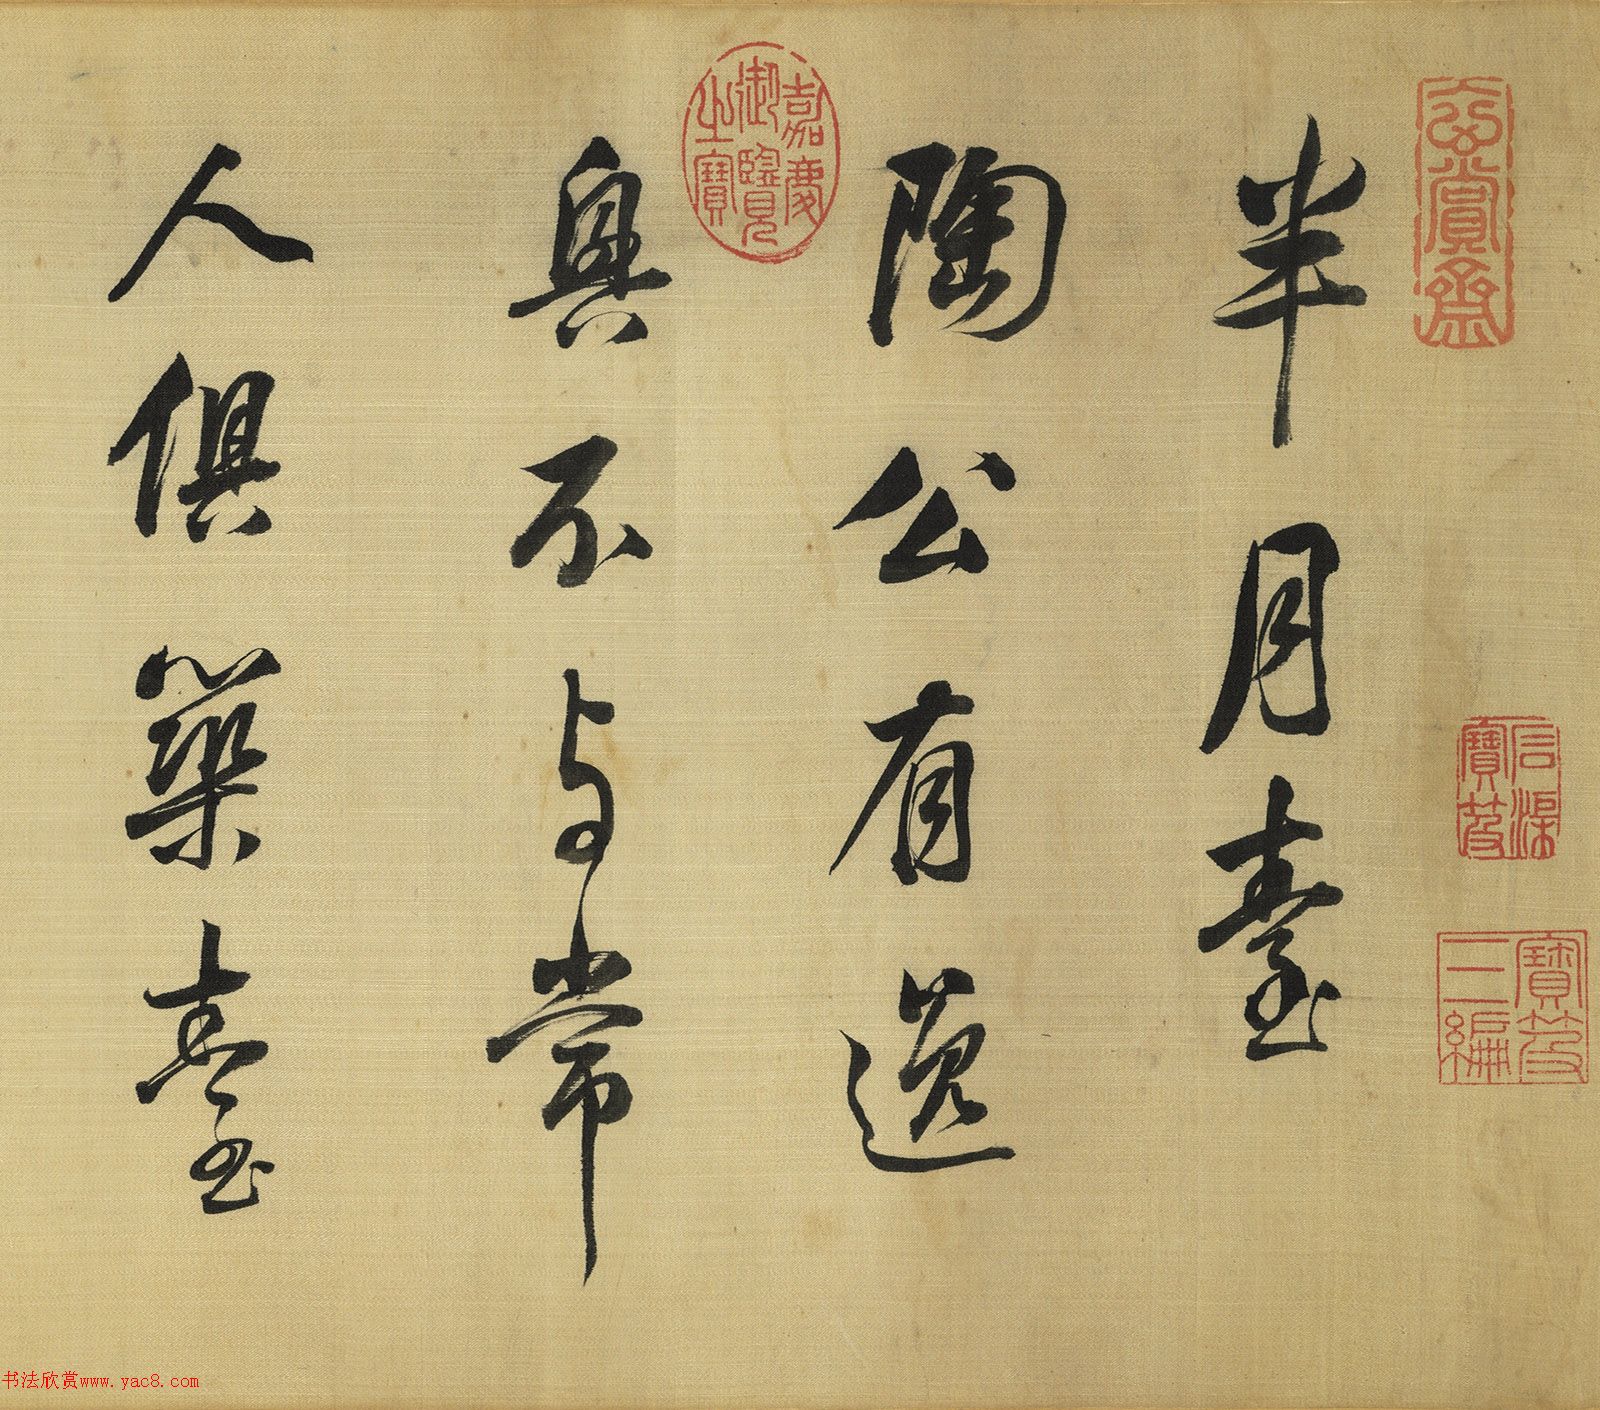 半月臺
陶公有逸
興不与常
人俱築臺
玄賞齋
石渠寶笈
寶笈三編
嘉慶御覽之寶
书法欣赏www.yac8.com